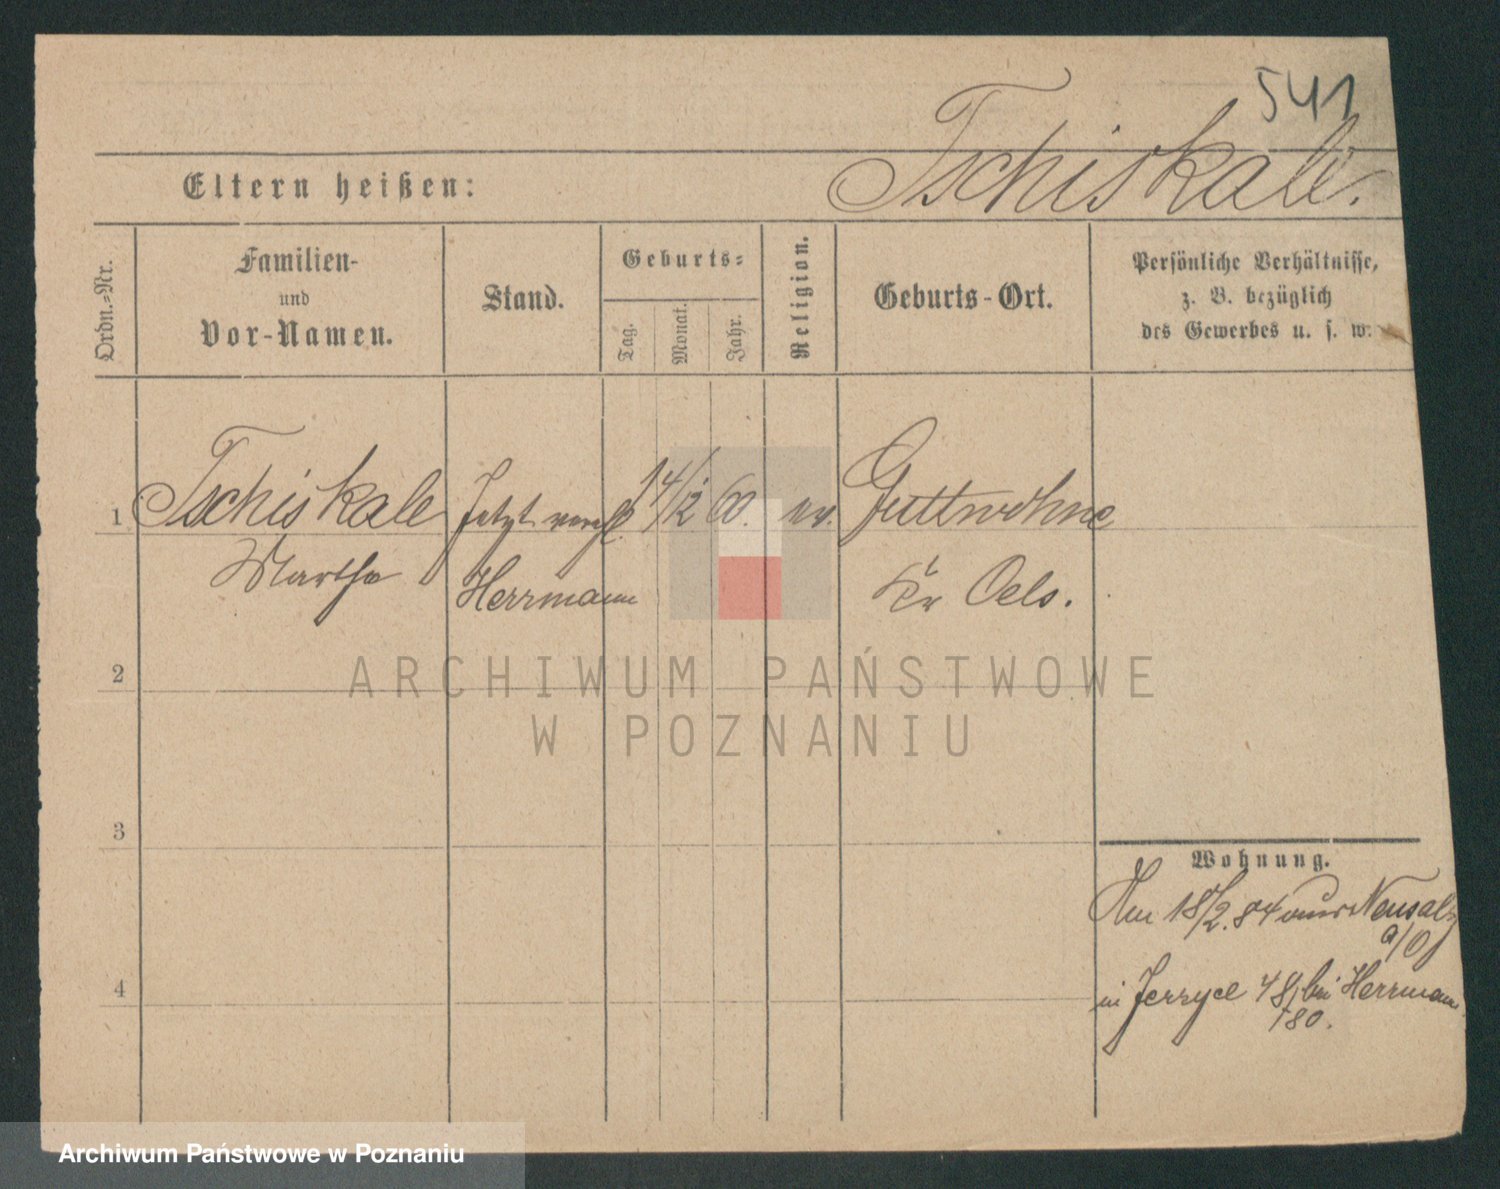 541
Tschiskale.
Eltern heißen:
Ordn.=Nr.
Familien-
und
Vor-Namen.
Stand.
Geburts=
Tag.
Monat.
Jahr.
Religion.
Geburts-Ort.
Persönliche Verhältnisse,
z. B. bezüglich
des Gewerbes u. s. w.
1 Tschiskale Jetzt verehl. 14/12 60. ev. Guttwohne
Martha Herrmann Kr Oels.
2
3
4
Wohnung.
Am 18/2.84 aus Neusalz
a/O
in Jerzyce 48, bei Herrmann
180.
ARCHIWUM PAŃSTWOWE
W POZNANIU
Archiwum Państwowe w Poznaniu